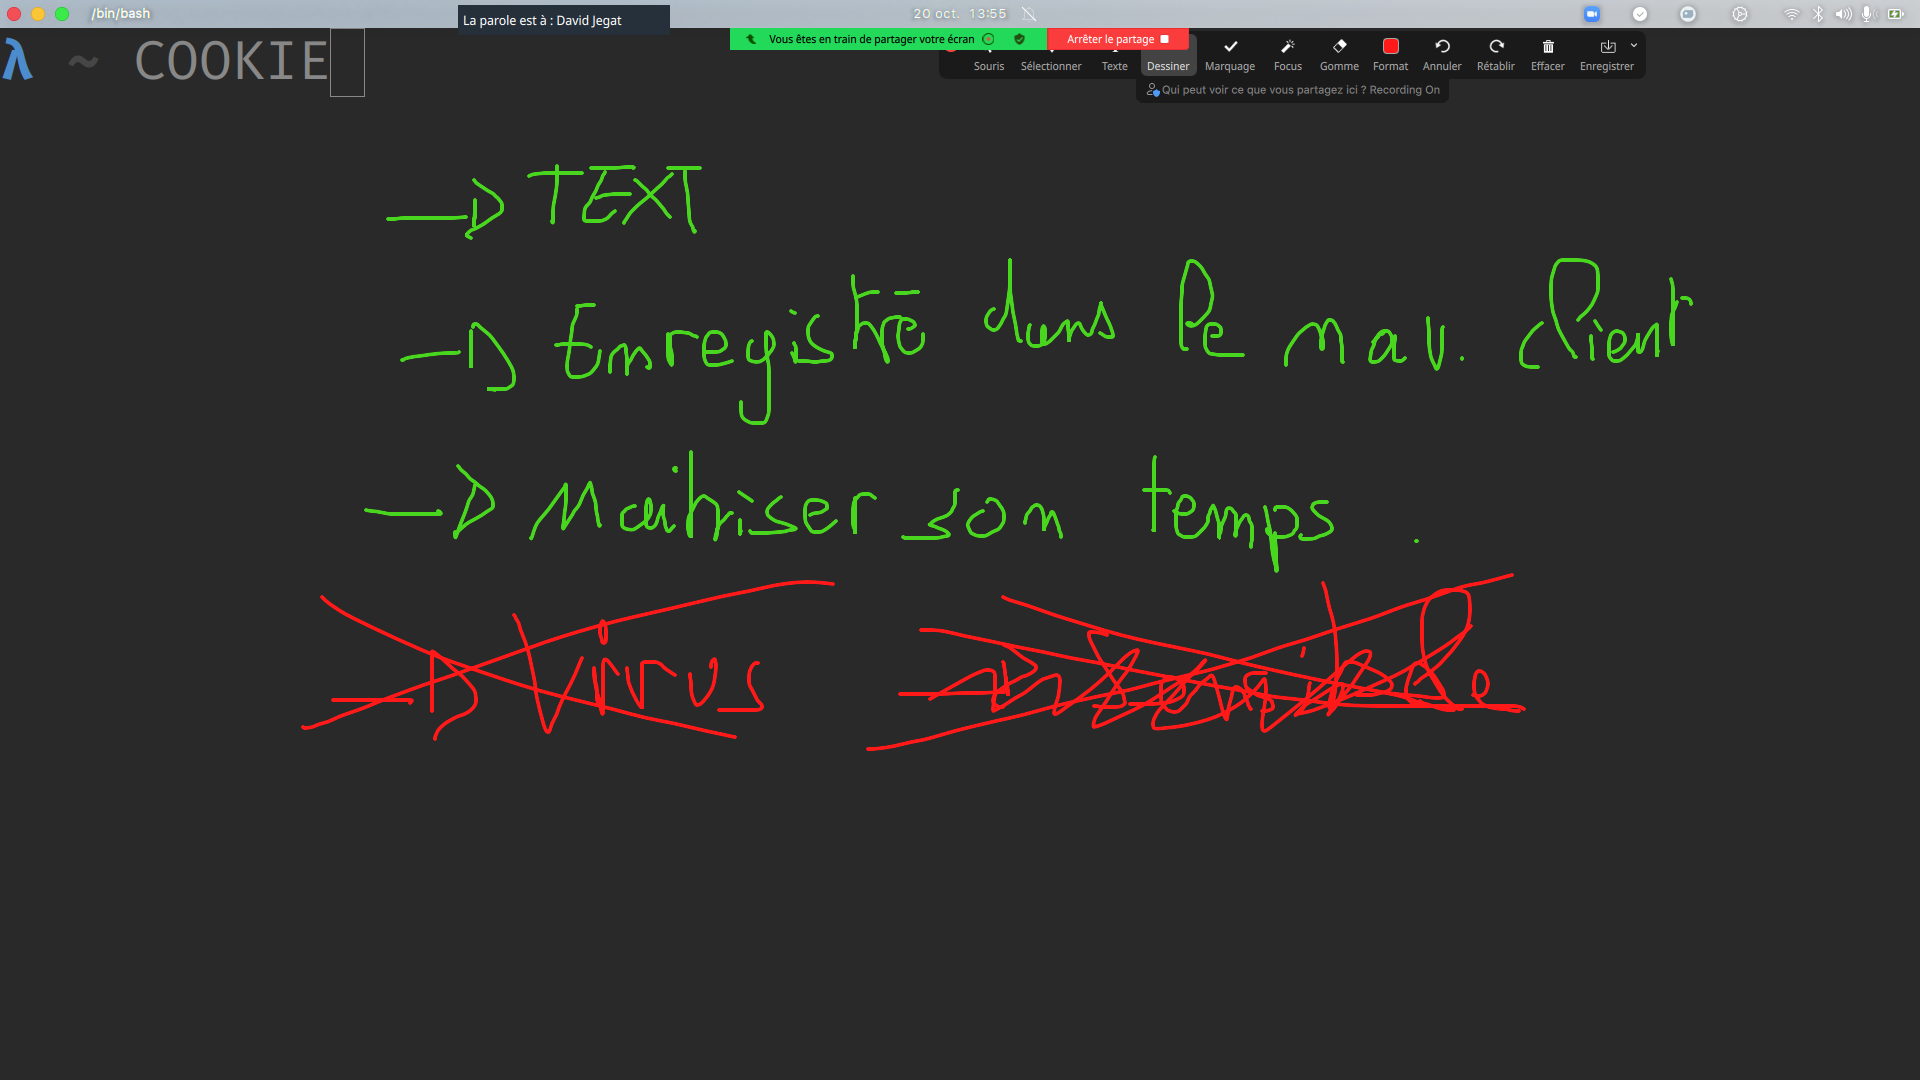 /bin/bash
La parole est à : David Jegat
20 oct. 13:55
Vous êtes en train de partager votre écran
Arrêter le partage
λ ~ COOKIE
Souris Sélectionner Texte Dessiner Marquage Focus Gomme Format Annuler Rétablir Effacer Enregistrer
Qui peut voir ce que vous partagez ici ? Recording On
TEXT
Enregistré dans le nav. client
Maitriser son temps.
Virus